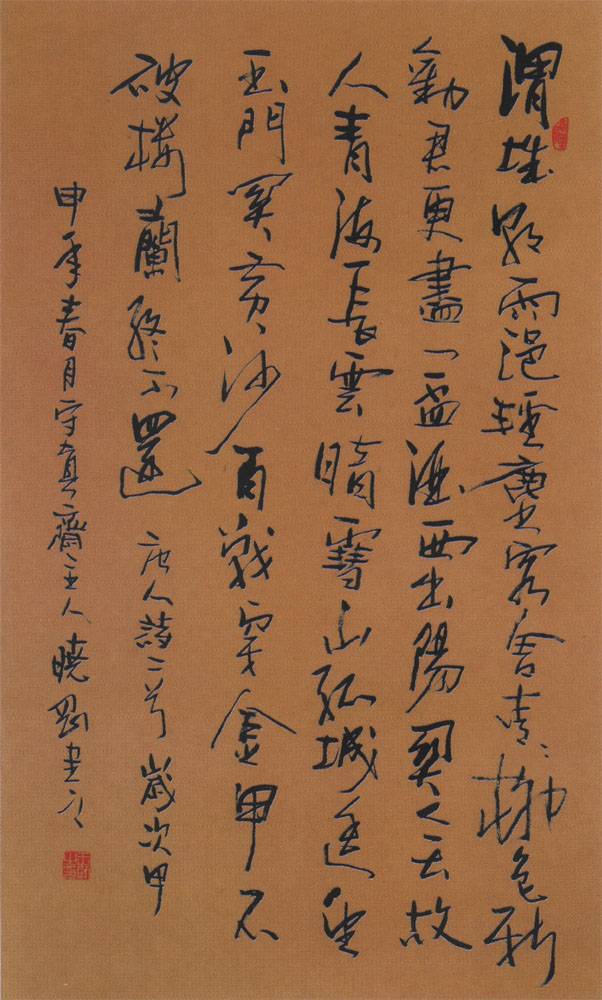 渭城朝雨浥輕塵客舍青々柳色新
勸君更盡一盃酒西出陽關无故
人青海長雲暗雪山孤城遥望
玉門關黄沙百戰穿金甲不
破樓蘭終不還 唐人詩二首 歲次甲
申年春月守真齋主人曉剛書